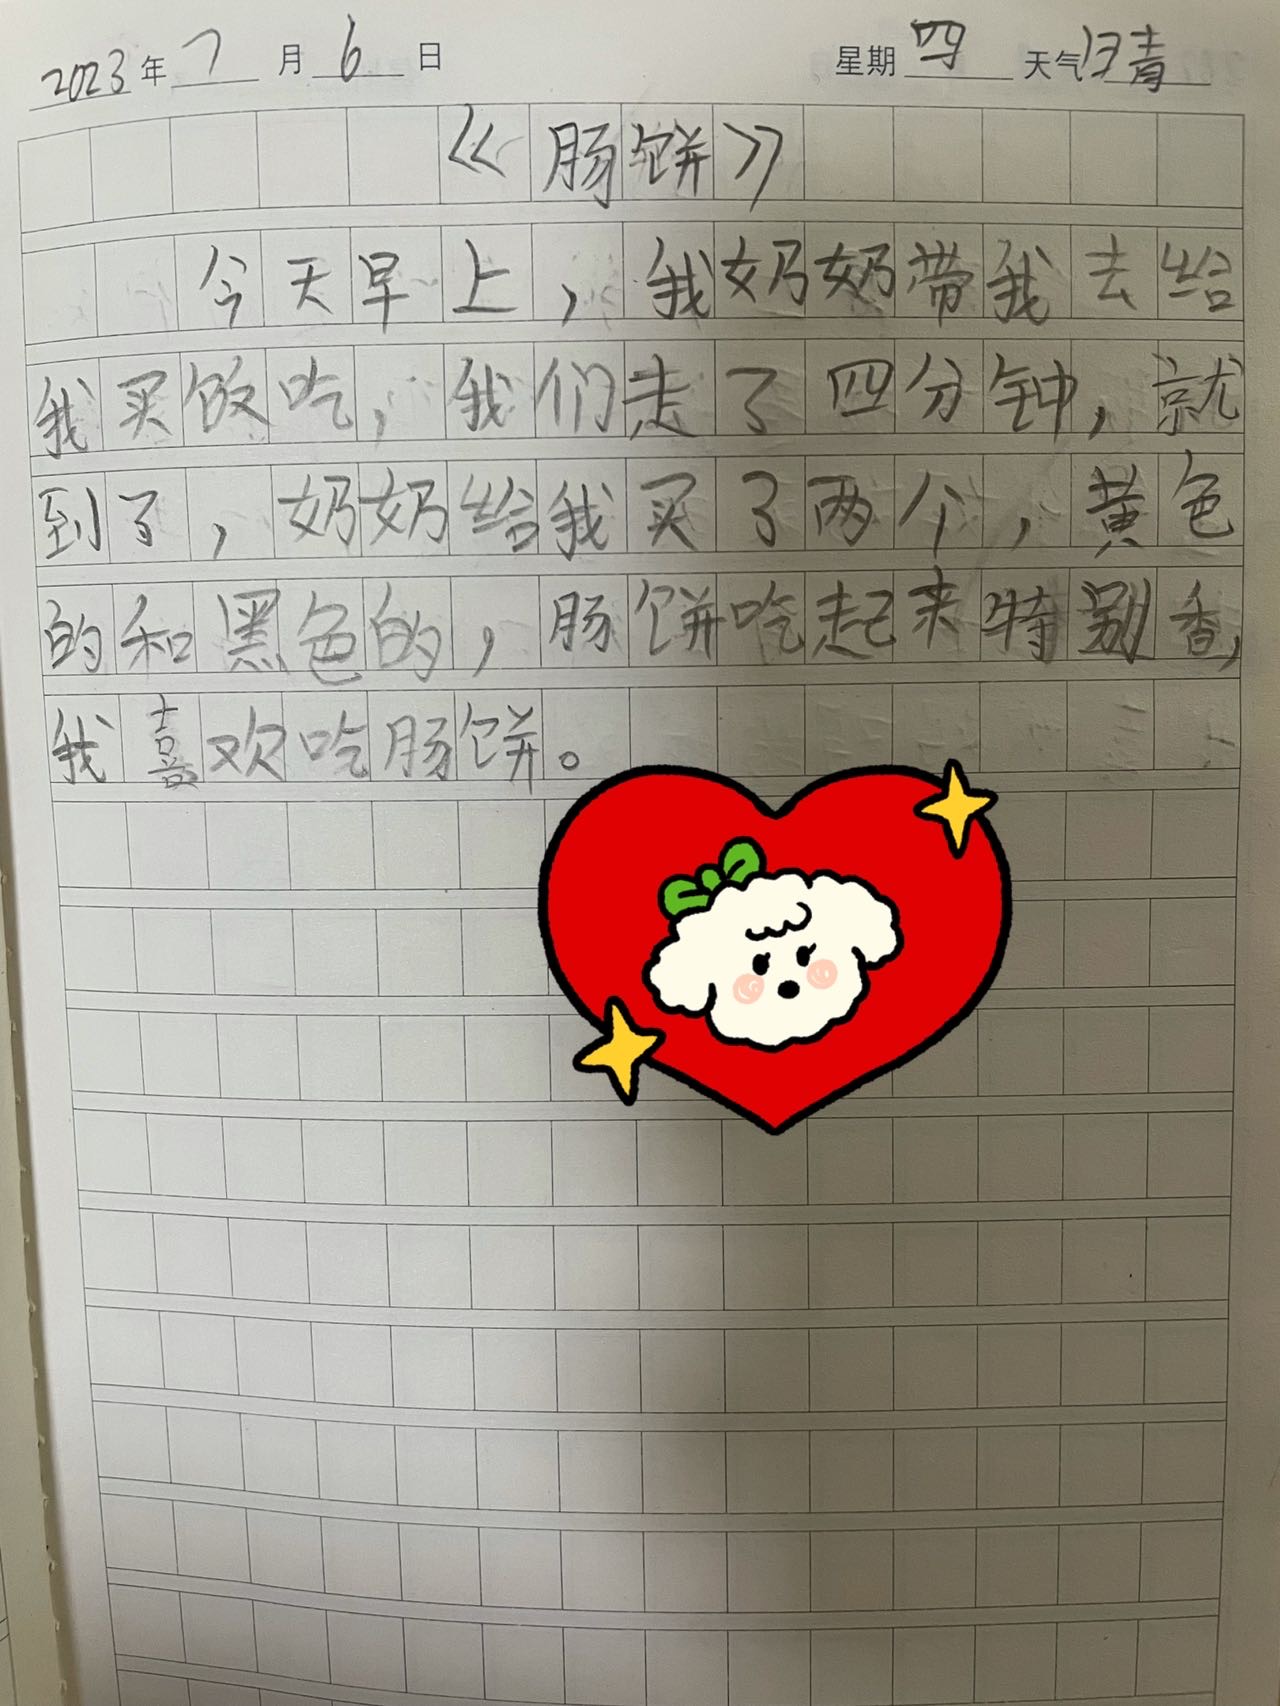 2023年7月6日 星期四 天气晴
《肠饼》
今天早上，我奶奶带我去给
我买饭吃，我们走了四分钟，就
到了，奶奶给我买了两个，黄色
的和黑色的，肠饼吃起来特别香，
我喜欢吃肠饼。